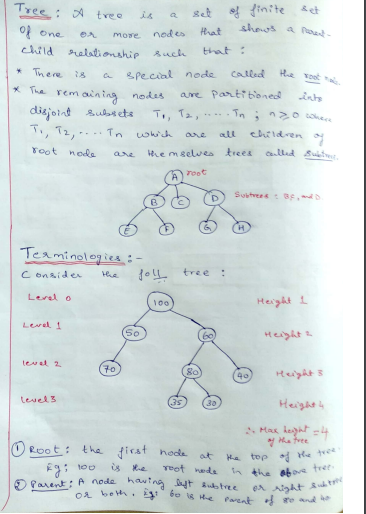 Tree : A tree is a set of finite set
of one or more nodes that shows a parent-
child relationship such that :
* There is a special node called the root node
* The remaining nodes are partitioned into
disjoint subsets T1, T2, ..... Tn ; n ≥ 0 where
T1, T2, .... Tn which are all children of
root node are themselves trees called subtree
A root
B C D Subtrees : B,C, and D
E F G H
Terminologies :-
Consider the foll tree :
Level 0 100 Height 1
Level 1 50 60 Height 2
level 2 70 80 40 Height 3
level 3 35 30 Height 4
∴ Max height = 4
of the tree
① Root : the first node at the top of the tree.
Eg: 100 is the root node in the above tree.
② Parent : A node having left subtree or right subtree
or both. Eg: 60 is the parent of 80 and 40